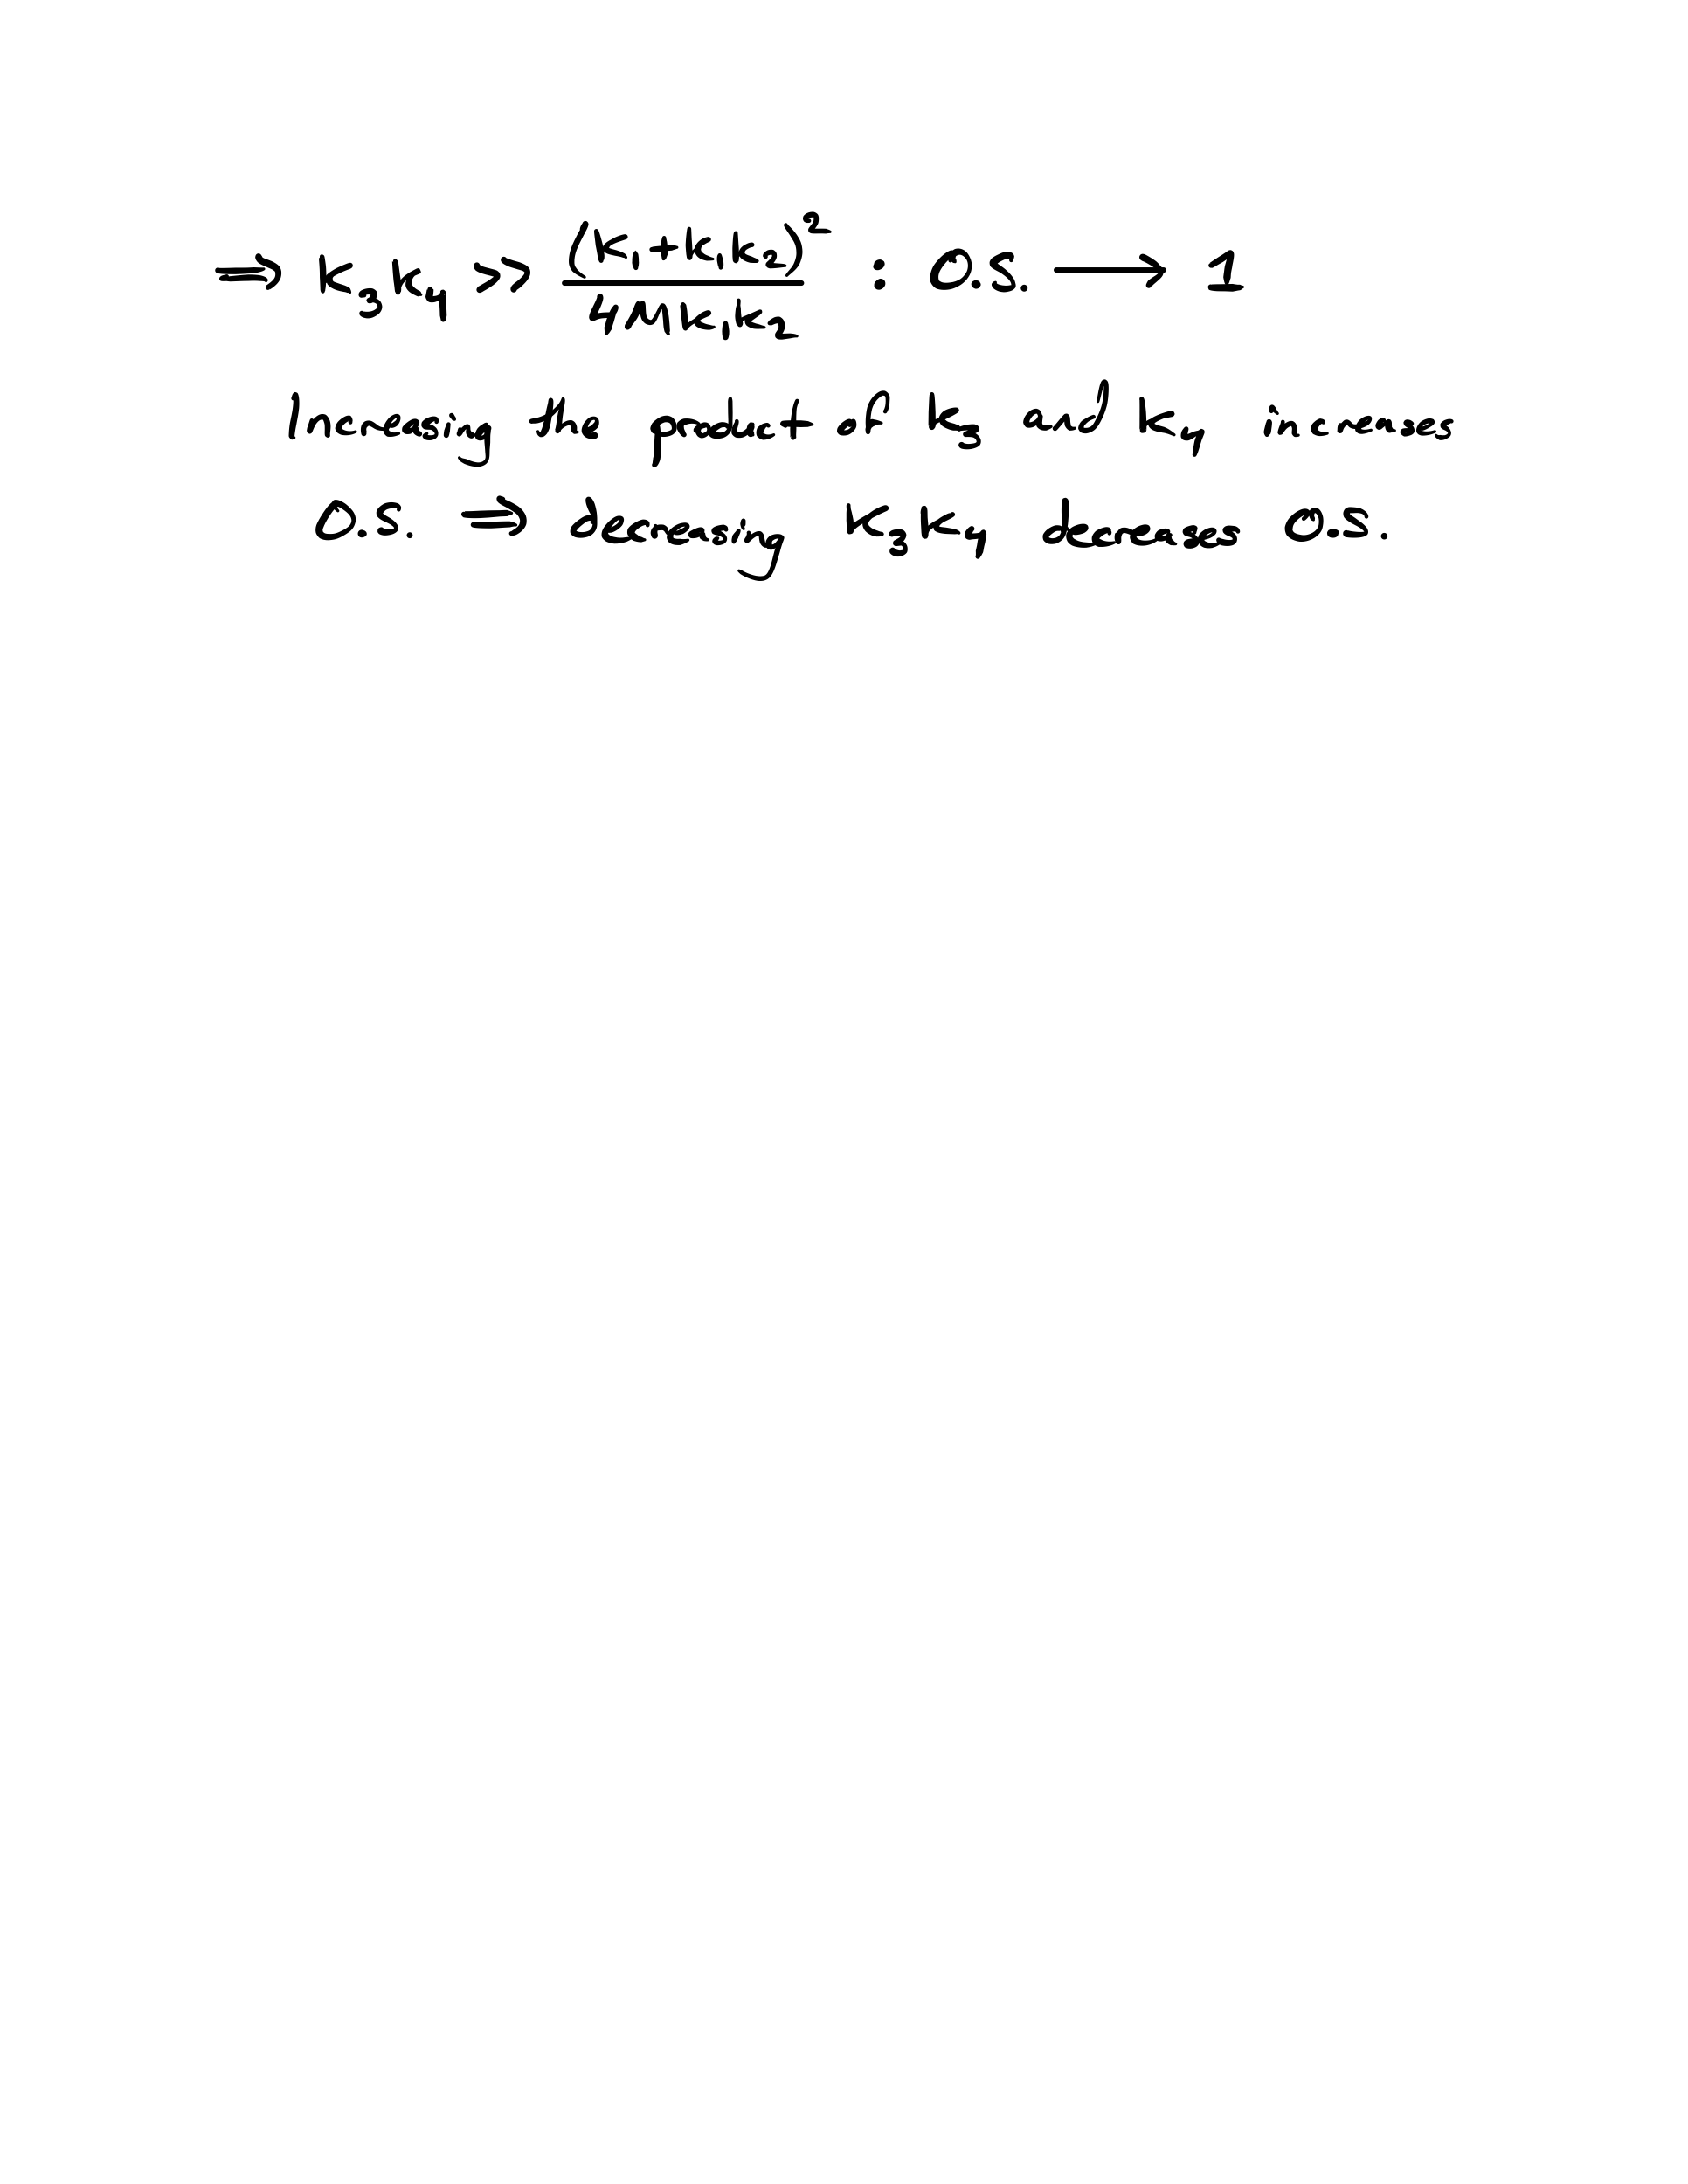 ⇒ K₃K₄ >> (K₁+K₁K₂)² / 4MK₁K₂ : O.S. ⟶ 1
Increasing the product of K₃ and K₄ increases
O.S. ⇒ decreasing K₃K₄ decreases O.S.